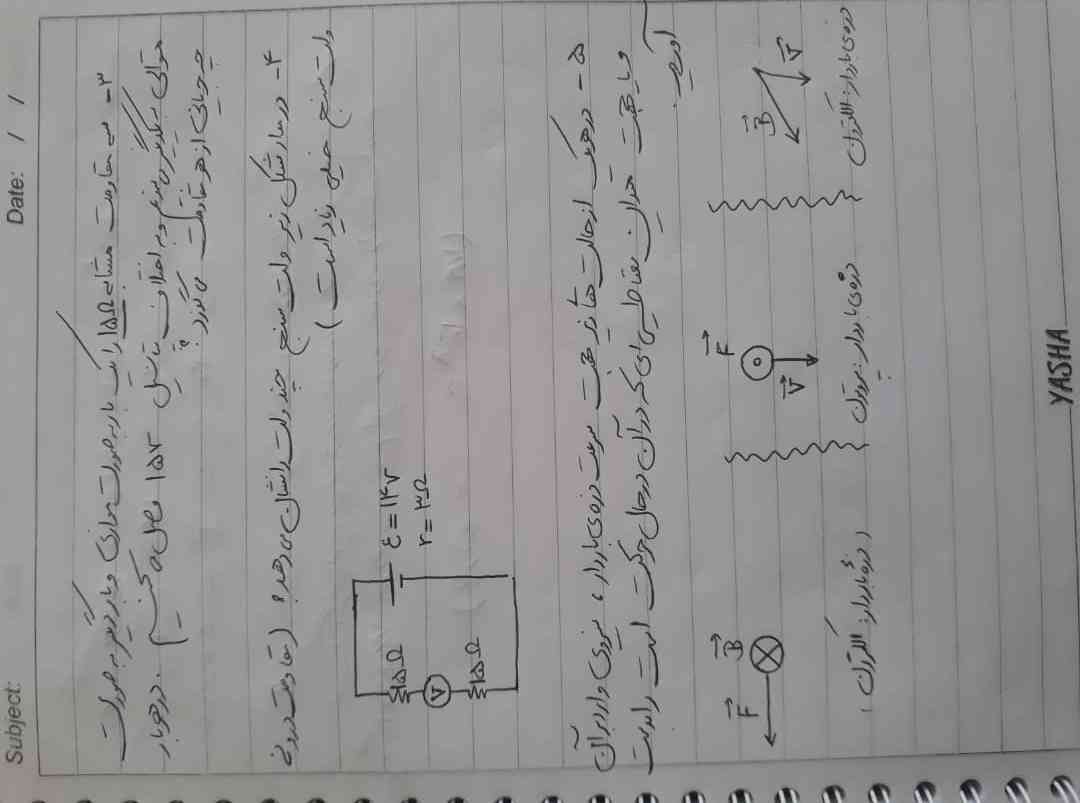 Subject:
Date: / /
۳- سه مقاومت مشابه ۱۵Ω را یک بار به صورت موازی و بار دیگر به صورت
متوالی به یکدیگر می‌بندیم و به اختلاف پتانسیل ۱۵V وصل می‌کنیم. در هر بار
چه جریانی از هر مقاومت می‌گذرد؟
۴- در مدار شکل زیر ولت سنج چند ولت را نشان می‌دهد؟ (مقاومت درونی
ولت سنج خیلی زیاد است)
ε = ۱۲V
r = ۳Ω
۱۵Ω
V
۱۵Ω
۵- در هر یک از حالت‌های زیر جهت سرعت ذره‌ی باردار، نیروی وارد بر آن
و یا جهت میدان مغناطیسی‌ای که در آن در حال حرکت است را بدست
آورید.
F B
(ذره باردار: الکترون)
F
V
ذره‌ی باردار: پروتون
B
V
ذره‌ی باردار: الکترون
YASHA